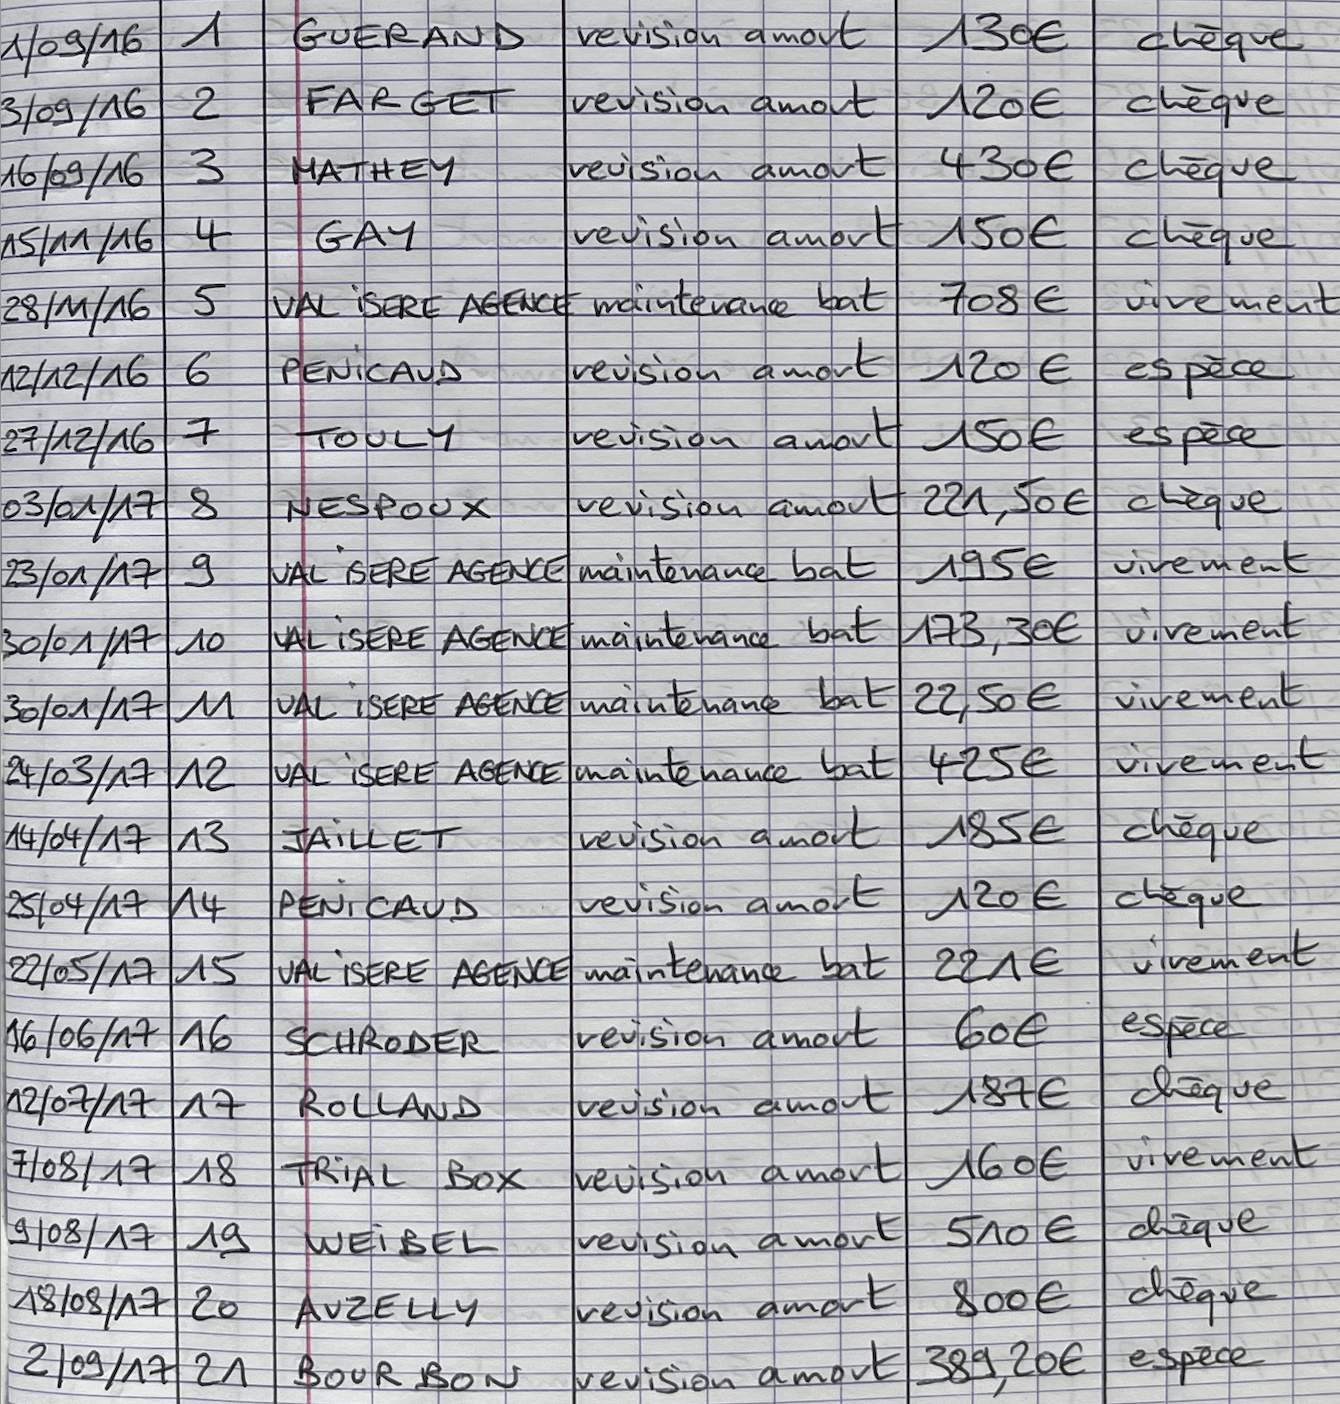 1/09/16 1 GUERAND revision amort 130€ chèque
3/09/16 2 FARGET revision amort 120€ chèque
16/09/16 3 MATHEY revision amort 430€ chèque
15/11/16 4 GAY revision amort 150€ chèque
28/11/16 5 VAL iSERE AGENCE maintenance bat 708€ virement
12/12/16 6 PENiCAUD revision amort 120€ espèce
27/12/16 7 TOULY revision amort 150€ espèce
03/01/17 8 NESPOUX revision amort 221,50€ chèque
23/01/17 9 VAL iSERE AGENCE maintenance bat 195€ virement
30/01/17 10 VAL iSERE AGENCE maintenance bat 173,30€ virement
30/01/17 11 VAL iSERE AGENCE maintenance bat 22,50€ virement
24/03/17 12 VAL iSERE AGENCE maintenance bat 425€ virement
14/04/17 13 JAiLLET revision amort 185€ chèque
25/04/17 14 PENiCAUD revision amort 120€ chèque
22/05/17 15 VAL iSERE AGENCE maintenance bat 221€ virement
16/06/17 16 SCHRODER revision amort 60€ espèce
12/07/17 17 ROLLAND revision amort 187€ chèque
7/08/17 18 TRiAL BOX revision amort 160€ virement
9/08/17 19 WEiBEL revision amort 510€ chèque
18/08/17 20 AUZELLY revision amort 800€ chèque
2/09/17 21 BOURBON revision amort 389,20€ espèce